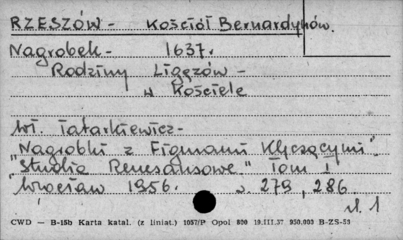 RZESZÓW - Kościół Bernardynów.
Nagrobek - 1637.
Rodziny Ligęzów -
w Kościele
Wł. Tatarkiewicz -
"Nagrobki z Figurami Klęczącymi".
"Studia Renesansowe." Tom I
Wrocław 1956. s. 279, 286.
il. 1
CWD — B-15b Karta katal. (z liniat.) 1057/P Opol 800 19.III.57 950.000 B-ZS-55